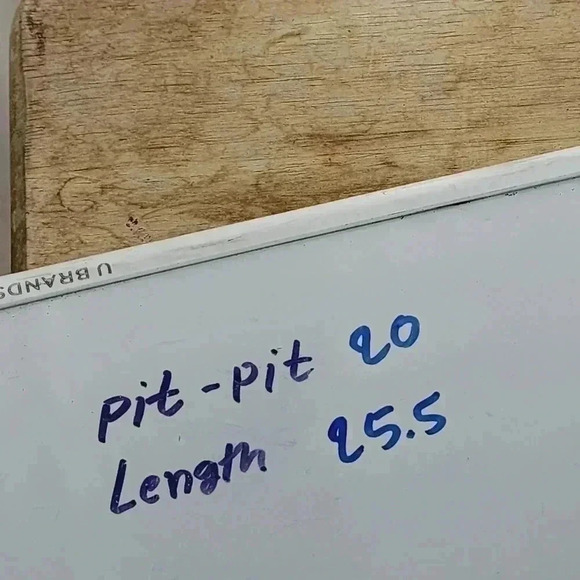 U BRANDS
pit-pit 20
Length 25.5